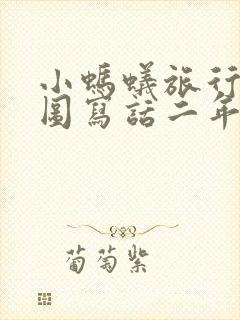 小螞蟻旅行
圖寫話二年
葡萄紫